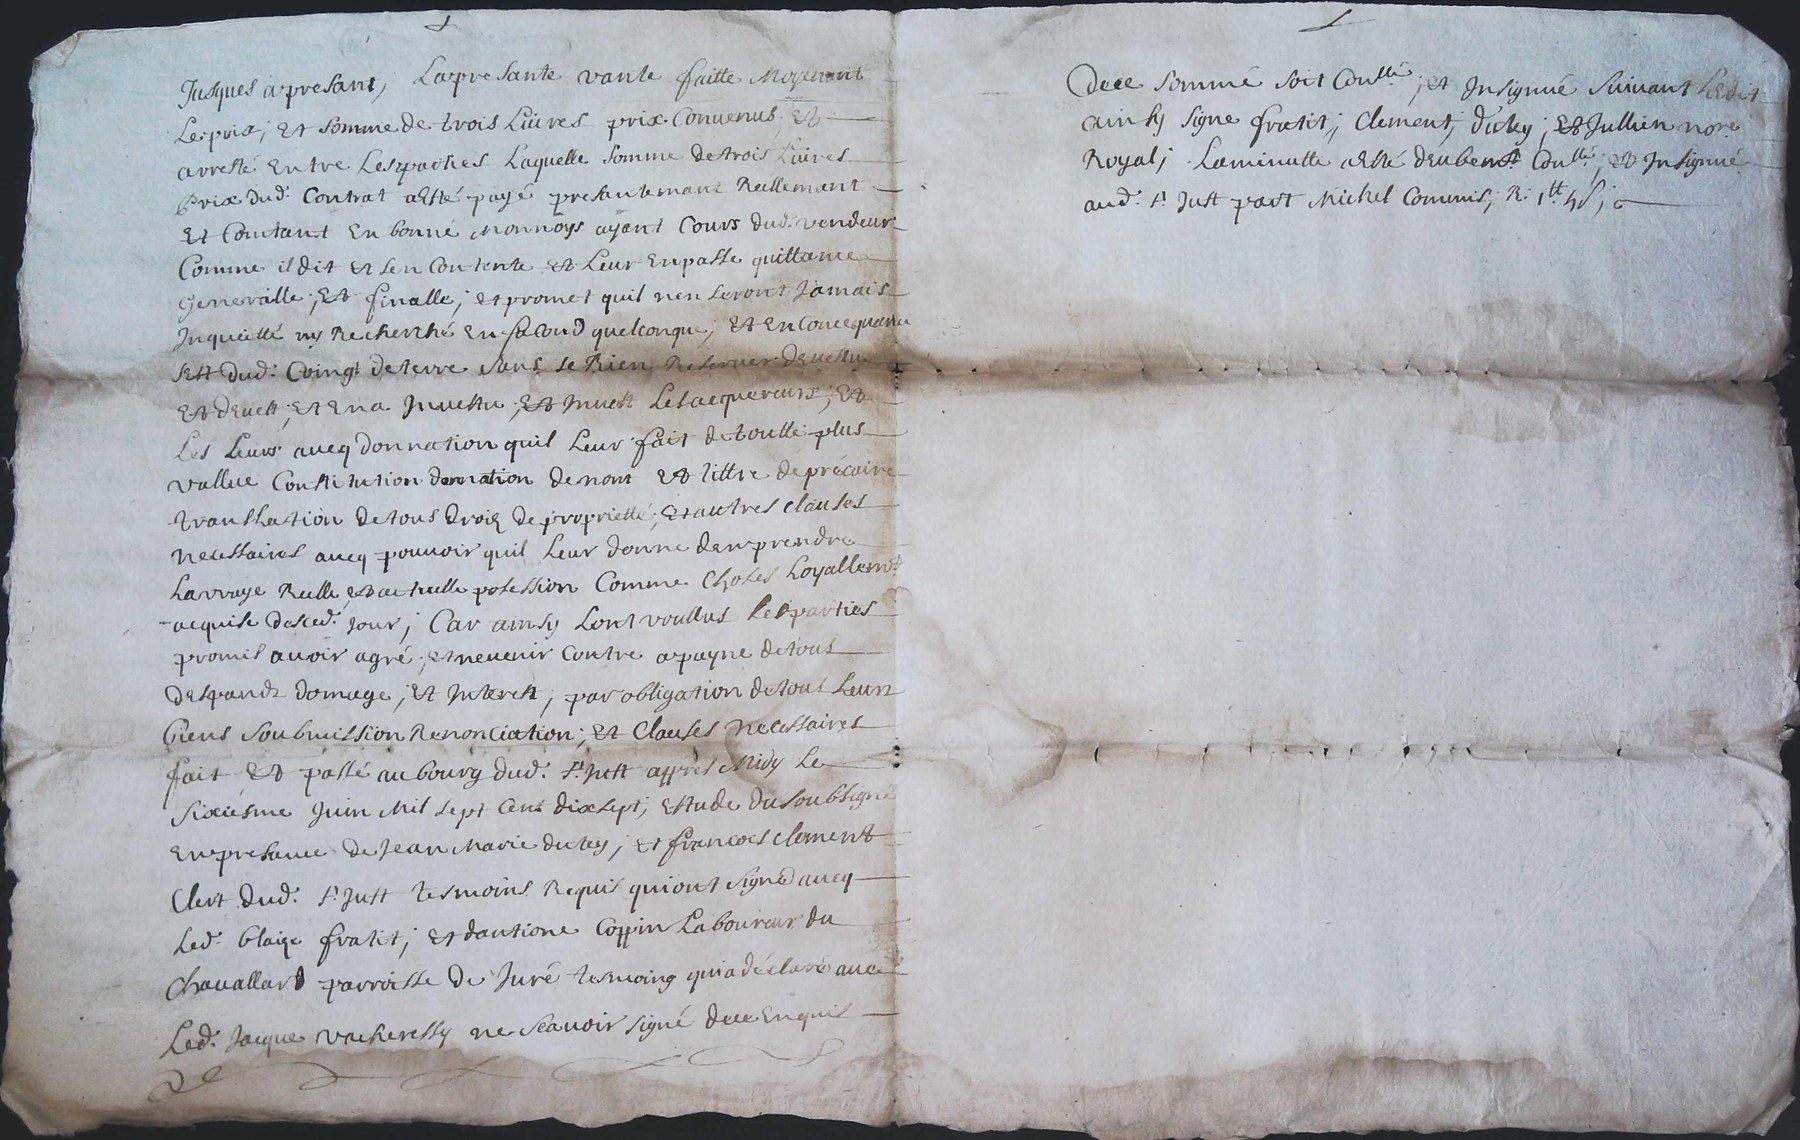 Jusques apresant, Lapresante vante faitte Moyenant
Leprix; Et somme de trois Liures prix Conuenus; Et
arresté Entre Lesparties Laquelle somme detrois Liures
Prix dud. Contrat aesté payé presentemant Reellemant
Et Contant En bonne Monnoys ayant Cours dud. vendeur
Comme il dit et sen Contente et Leur Enpasse quittance
Generalle; Et finalle; et promet quil nen seront Jamais
Inquietté ny Recherché En facond quelconque; Et En Concequance
sest dud. Coing de terre sans se Rien Reseruer deuestu
Et deuest; Et Ena Inuestu; Et Inuest Lesacquereurs; Et
Les Leurs aueq donnation quil Leur fait detoutte plus
vallue Constitution de nom Et tittre deprécaire
translation detous droiq de proprietté; Et autres clauses
necessaires aueq pouuoir quil Leur donne den prendre
Lavraye Reelle Et actuelle posession Comme Choses Loyallemt
acquise desced. Jour; Car ainsy Lont voullus Les parties
promis auoir agré; et neuenir Contre apayne detous
Despands domage; Et Interest; par obligation detous Leurs
biens soubmission Renonciation; Et Clauses necessaires
fait Et passé aubourg dud. St. Just apprés Midy Le
sixiesme Juin Mil sept Cens dixsept; Estude du soubsigné
Enpresance de Jean Marie dutey; Et francoes clement
Clert dud. St. Just tesmoins Requis quiont signé aueq
Led. blaize fratit; et dantione Coppin Laboureur du
Chauallard parroisse de Juré tesmoing quia déclaré auec
Led. Jacque vacheressy ne scauoir signé dece Enquis
Dece sommé soit Conllé; Et Insignué suiuant Ledit
ainsy signe fratit; Clement; dutey; Et Jullien nore
Royal; Laminutte aesté deubemt Conllé; et Insignué
aud. St. Just part Michel Commis; R. 1tt